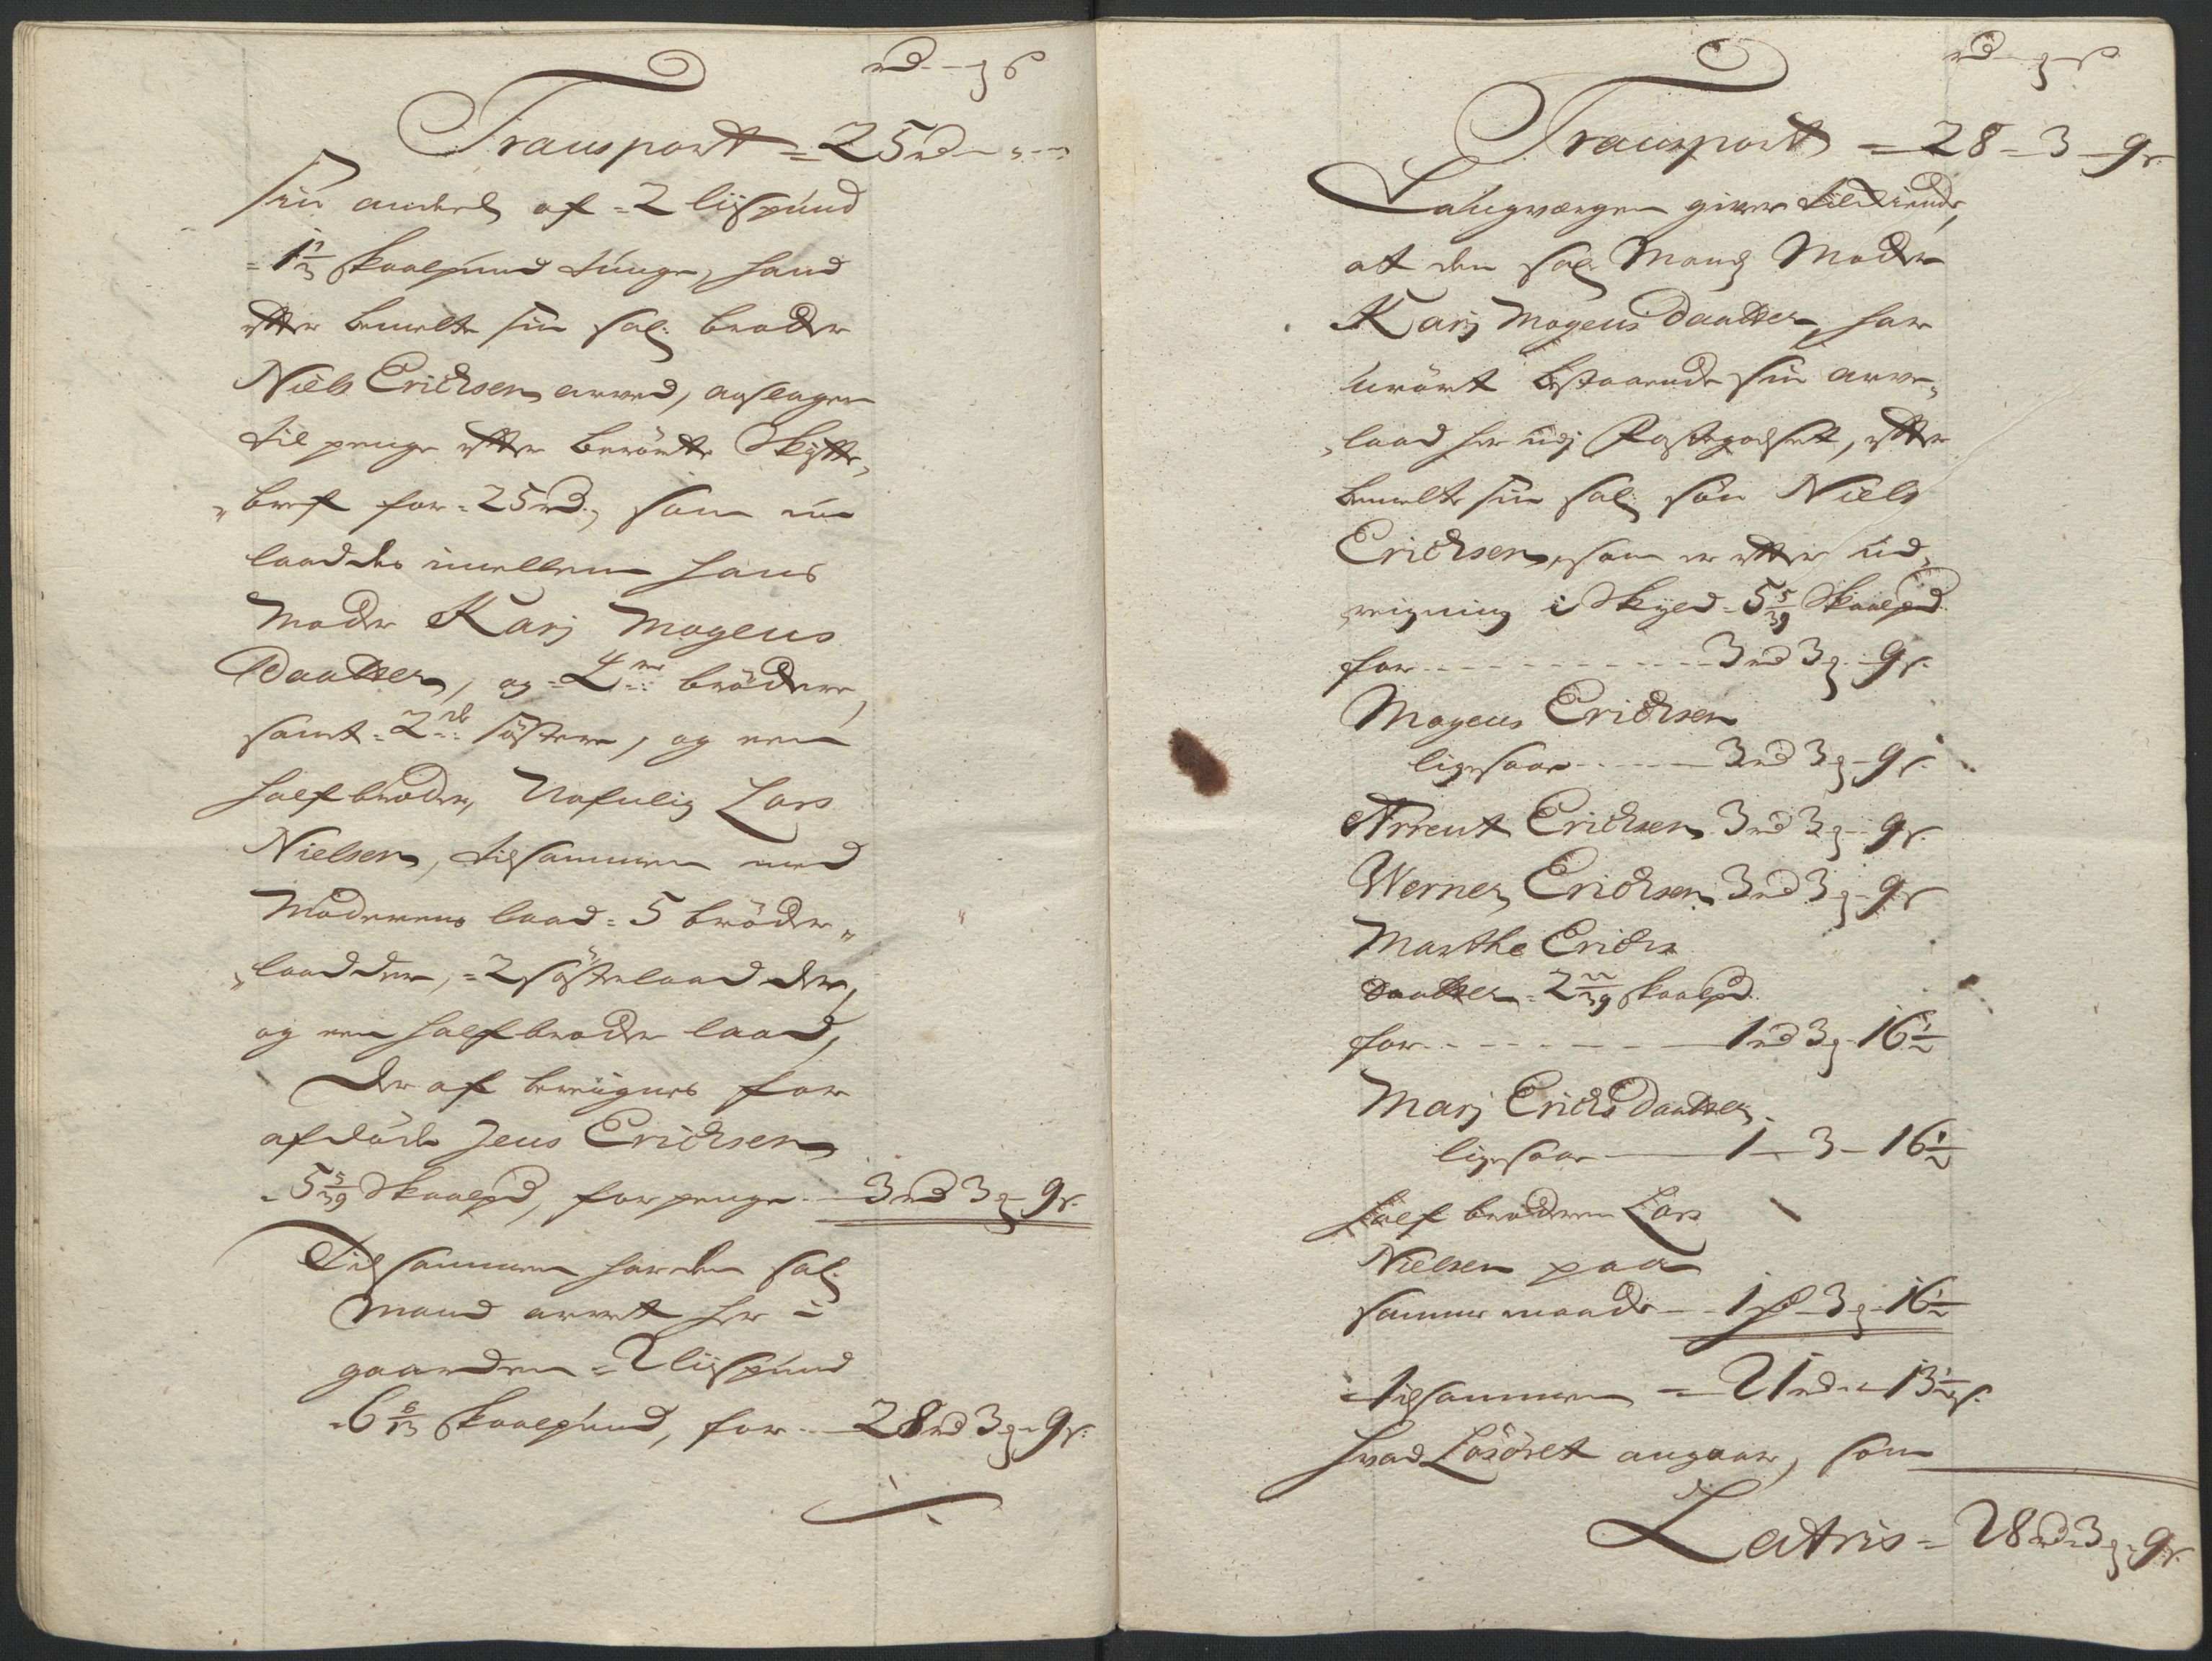 rd - ʒ ß
Transport = 25 rd - " - "
sin andeel af = 2 lispund
= 1 1/3 skaalpund tunge, hand
efter bemelte sin sal: broder
Niels Erichsen arved, anslagen
til penge efter berörte Skiftte„
„bref for = 25 rd., som nu
laaddes imellem hans
Moder Karj Mogens
Daatter, og = 4re brödre,
samt = 2de söstre, og een
halfbroder, Nafnlig Lars
Nielsen, tilsammen med
Moderens laad = 5 bröder„
„laadder, = 2 söstelaadder,
og een halfbroder laad,
Der af bereignes for
afdöde Jens Erichsen
= 5 5/39 Skaalpd, for penge - 3 rd 3 ʒ 9 ß.
Tilsammen har den sal:
Mand arvet her i
gaarden = 2 lispund
= 6 6/13 skaalpund, for - 28 rd 3 ʒ 9 ß.
rd - ʒ - ß
Transport = 28 - 3 - 9 ß.
Laugværgen giver tilkiende,
at den sal: Mands Moder
Karj Mogens Daatter, har
urört bestaaende sin arve„
„laad her udj Faste godset, efter
bemelte sin sal: sön Niels
Erichsen, som er efter ud„
„reigning i Skyld = 5 5/39 Skaalpd
for - - - - 3 rd 3 ʒ - 9 ß.
Mogens Erichsen
ligesaa - - - 3 rd 3 ʒ - 9 ß.
Arrent Erichsen 3 rd 3 ʒ - 9 ß.
Werner Erichsen 3 rd 3 ʒ - 9 ß
Marthe Erichs
Daatter = 2 22/39 skaalpd.
for - - - - 1 rd 3 ʒ - 16 1/2
Marj Erichs Daatter
ligesaa - 1 - 3 - 16 1/2
Half broderen Lars
Nielsen paa
samme maade - - 1 rd - 3 ʒ - 16 1/2
tilsammen = 21 rd - " - 13 1/2 ß.
Hvad Lösöret angaar, som
Latris = 28 rd 3 ʒ - 9 ß.